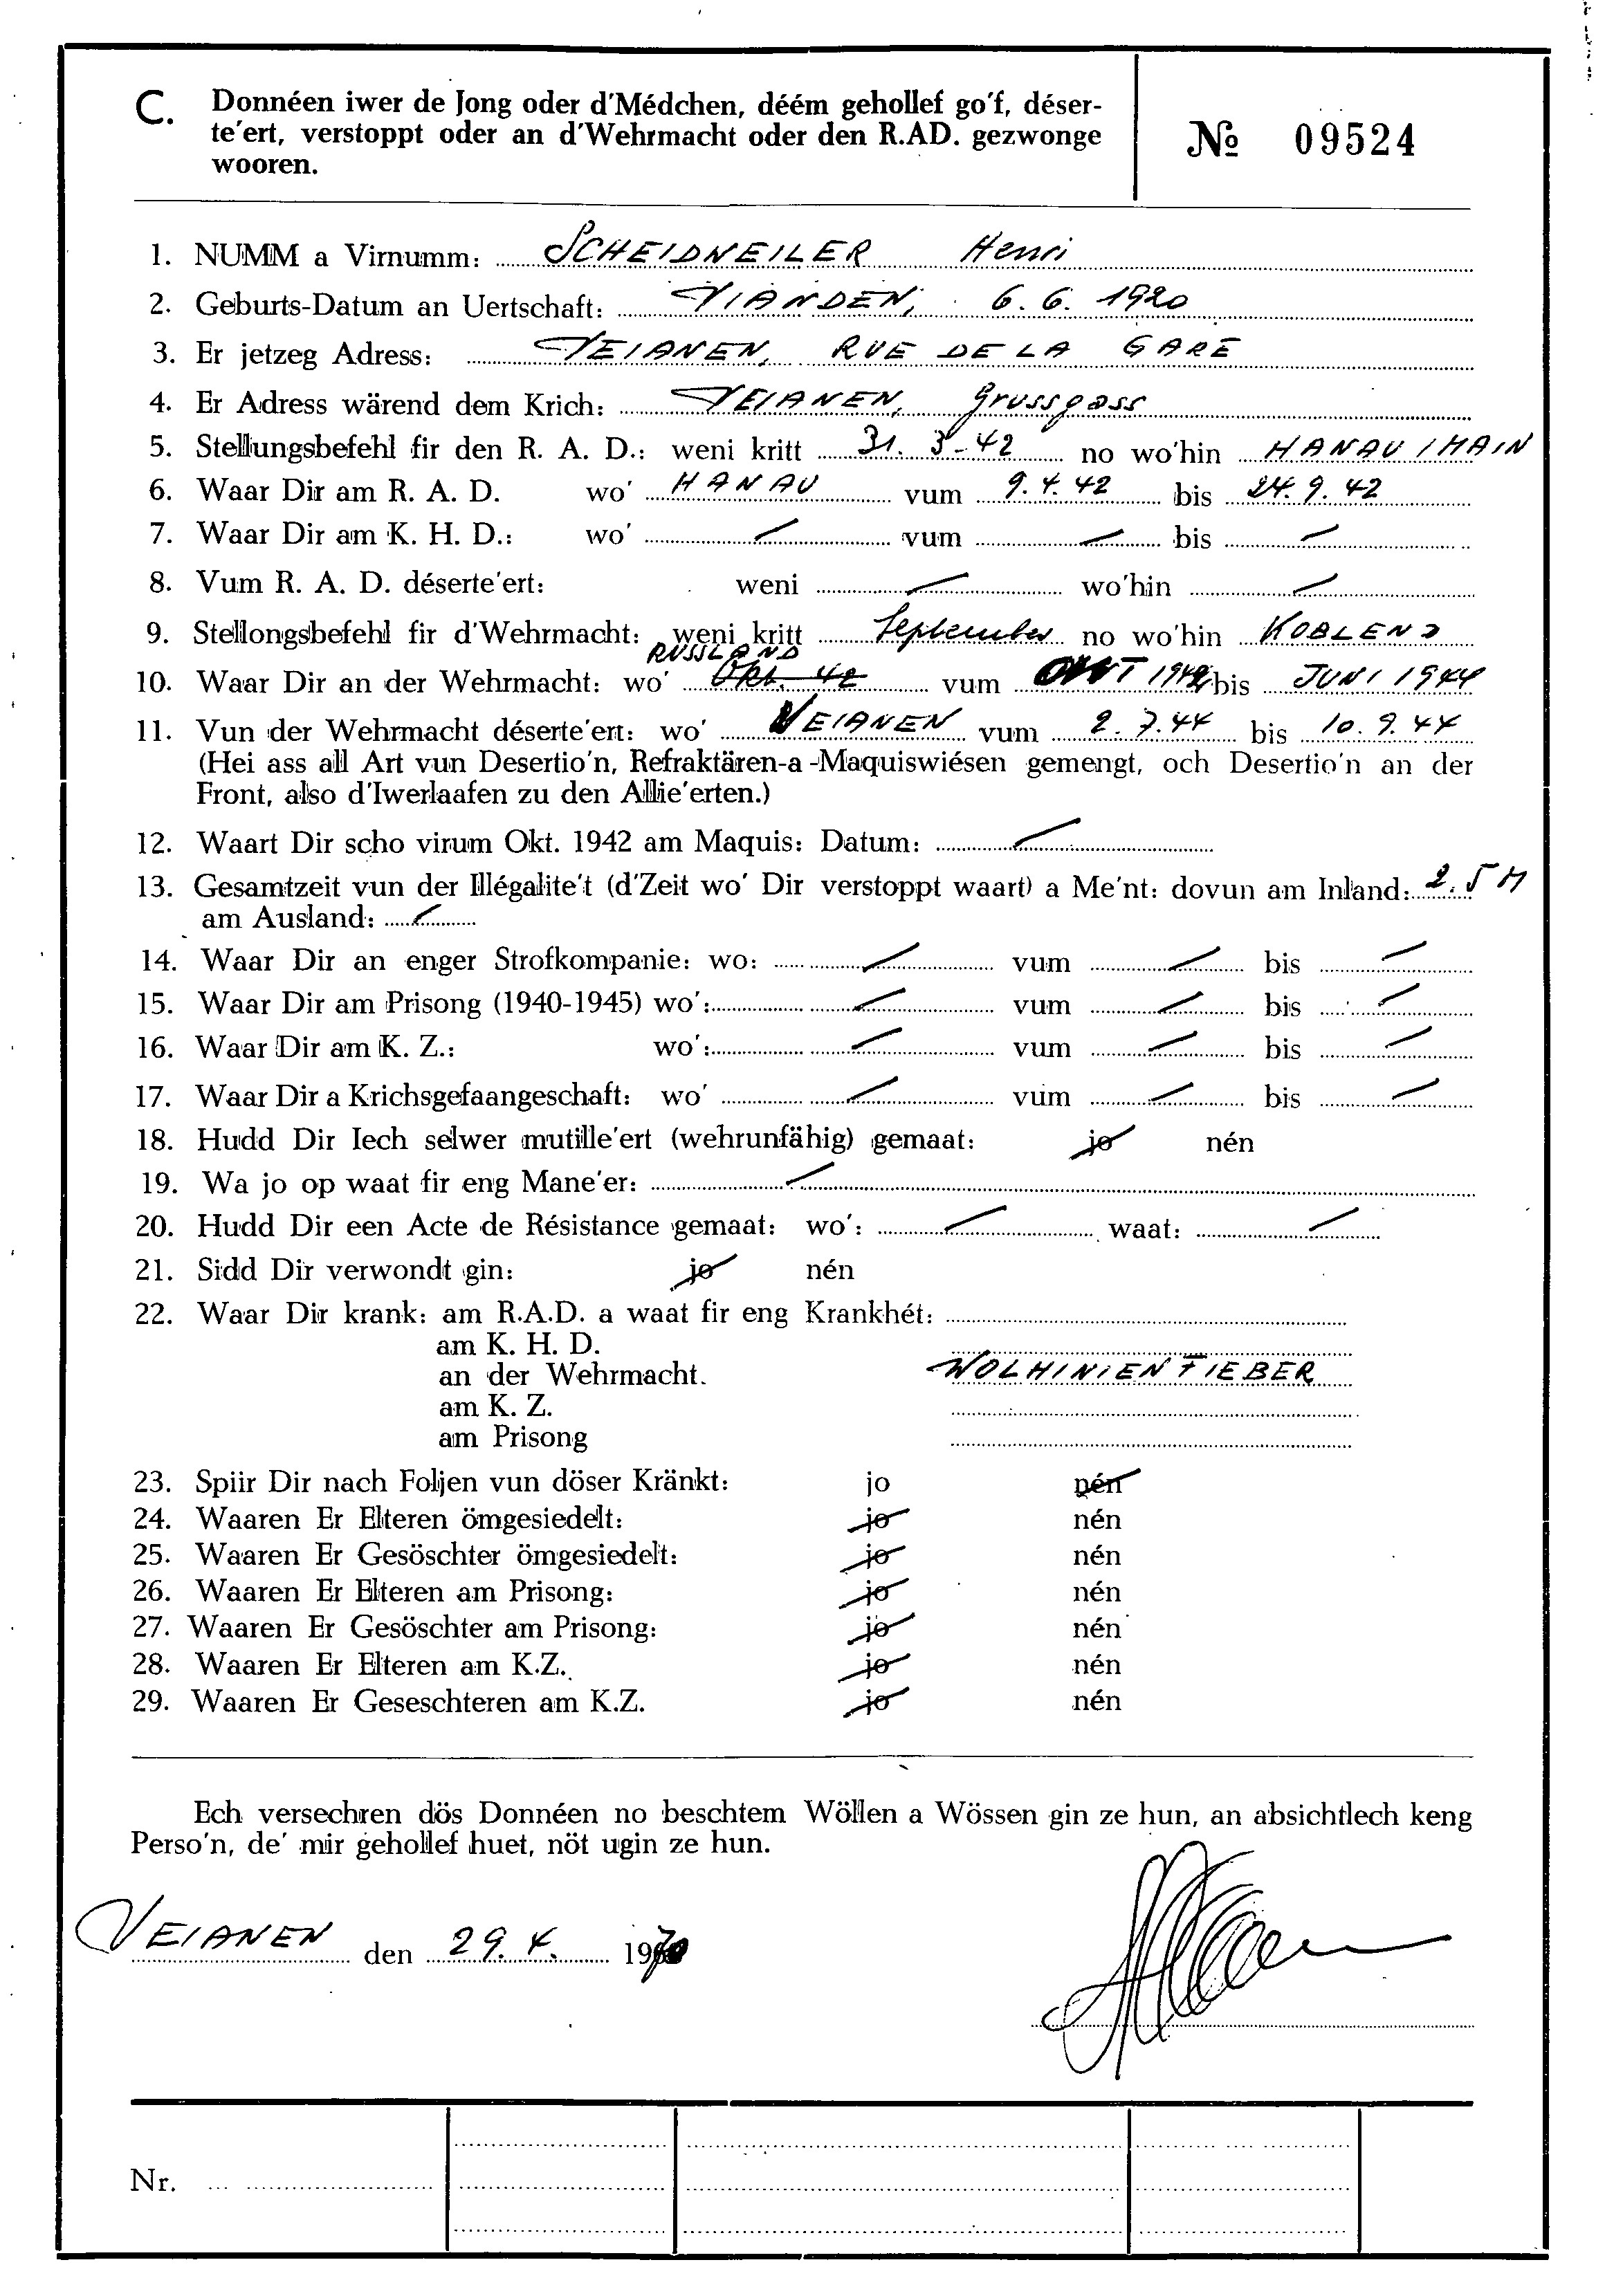 C. Donnéen iwer de Jong oder d'Médchen, déém gehollef go'f, déser-
te'ert, verstoppt oder an d'Wehrmacht oder den R.AD. gezwonge
wooren.
№ 09524
1. NUMM a Virnumm: SCHEIDWEILER Henri
2. Geburts-Datum an Uertschaft: VIANDEN, 6. 6. 1920
3. Er jetzeg Adress: VEIANEN, RUE DE LA GARE
4. Er Adress wärend dem Krich: VEIANEN, Grussgass
5. Stellungsbefehl fir den R. A. D.: weni kritt 31. 3-42 no wo'hin HANAU / MAIN
6. Waar Dir am R. A. D. wo' HANAU vum 9. 4. 42 bis 24. 9. 42
7. Waar Dir am K. H. D.: wo' vum bis
8. Vum R. A. D. déserte'ert: weni wo'hin
9. Stellongsbefehl fir d'Wehrmacht: weni kritt September no wo'hin KOBLENZ
RUSSLAND
10. Waar Dir an der Wehrmacht: wo' Okt. 42 vum OKT 1942 bis JUNI 1944
11. Vun der Wehrmacht déserte'ert: wo' VEIANEN vum 2. 7. 44 bis 10. 9. 44
(Hei ass all Art vun Desertio'n, Refraktären-a -Maquiswiésen gemengt, och Desertio'n an der
Front, also d'Iwerlaafen zu den Allie'erten.)
12. Waart Dir scho virum Okt. 1942 am Maquis: Datum:
13. Gesamtzeit vun der Illégalite't (d'Zeit wo' Dir verstoppt waart) a Me'nt: dovun am Inland: 2.5 M
am Ausland:
14. Waar Dir an enger Strofkompanie: wo: vum bis
15. Waar Dir am Prisong (1940-1945) wo': vum bis
16. Waar Dir am K. Z.: wo': vum bis
17. Waar Dir a Krichsgefaangeschaft: wo' vum bis
18. Hudd Dir Iech selwer mutille'ert (wehrunfähig) gemaat: jo nén
19. Wa jo op waat fir eng Mane'er:
20. Hudd Dir een Acte de Résistance gemaat: wo': waat:
21. Sidd Dir verwondt gin: jo nén
22. Waar Dir krank: am R.A.D. a waat fir eng Krankhét:
am K. H. D.
an der Wehrmacht. WOLHINIENFIEBER
am K. Z.
am Prisong
23. Spiir Dir nach Foljen vun döser Kränkt: jo nén
24. Waaren Er Elteren ömgesiedelt: jo nén
25. Waaren Er Gesöschter ömgesiedelt: jo nén
26. Waaren Er Elteren am Prisong: jo nén
27. Waaren Er Gesöschter am Prisong: jo nén
28. Waaren Er Elteren am K.Z. jo nén
29. Waaren Er Geseschteren am K.Z. jo nén
Ech versechren dös Donnéen no beschtem Wöllen a Wössen gin ze hun, an absichtlech keng
Perso'n, de' mir gehollef huet, nöt ugin ze hun.
VEIANEN den 29. 4. 1970
Nr.